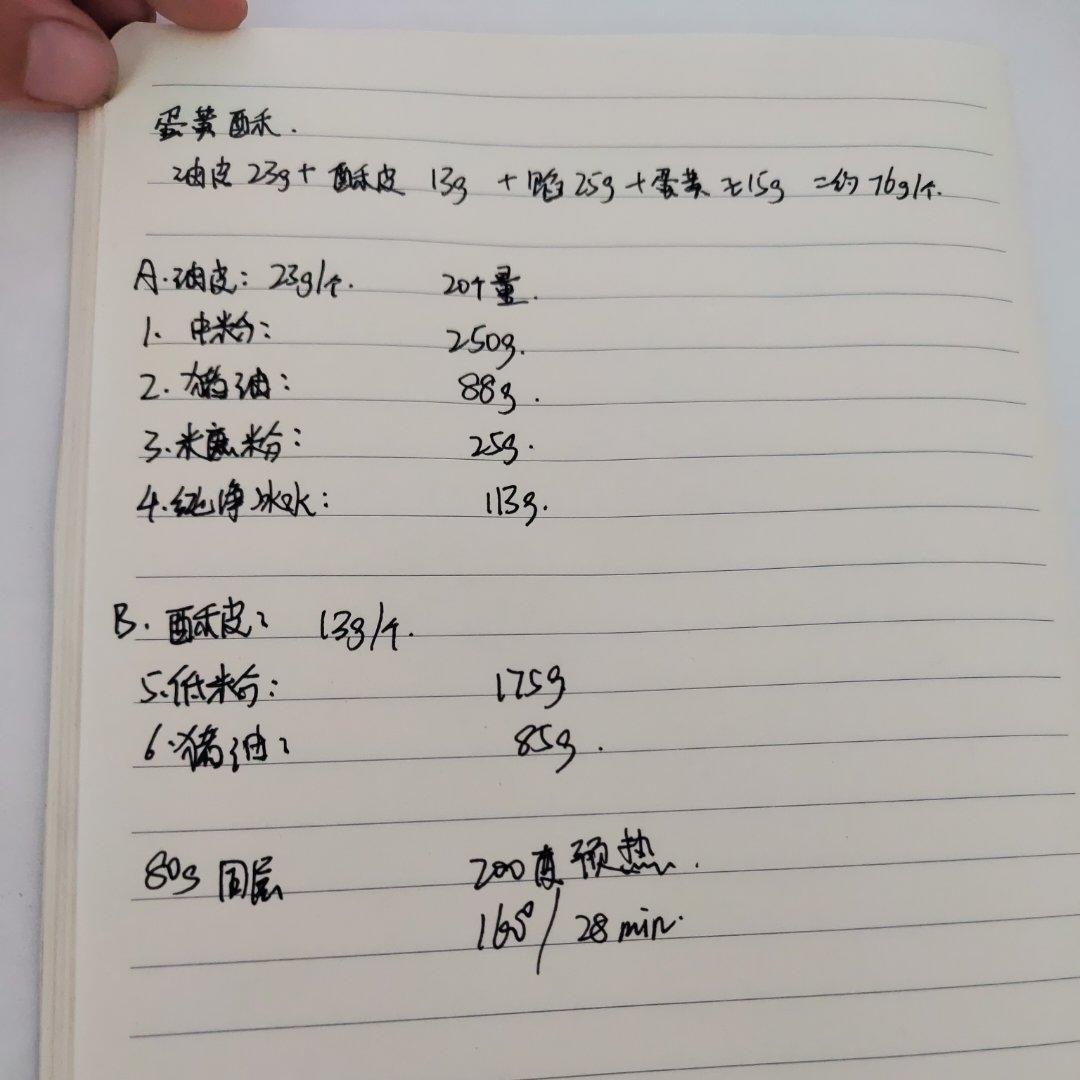 蛋黄酥.
油皮 23g + 酥皮 13g + 馅 25g + 蛋黄 ≈15g = 约 76g/个.
A. 油皮: 23g/个. 20个量.
1. 中粉: 250g.
2. 猪油: 88g.
3. 米糠粉: 25g.
4. 纯净冰水: 113g.
B. 酥皮: 13g/个.
5. 低粉: 175g
6. 猪油: 85g.
80g 回层 200度 预热.
160°/ 28 min.